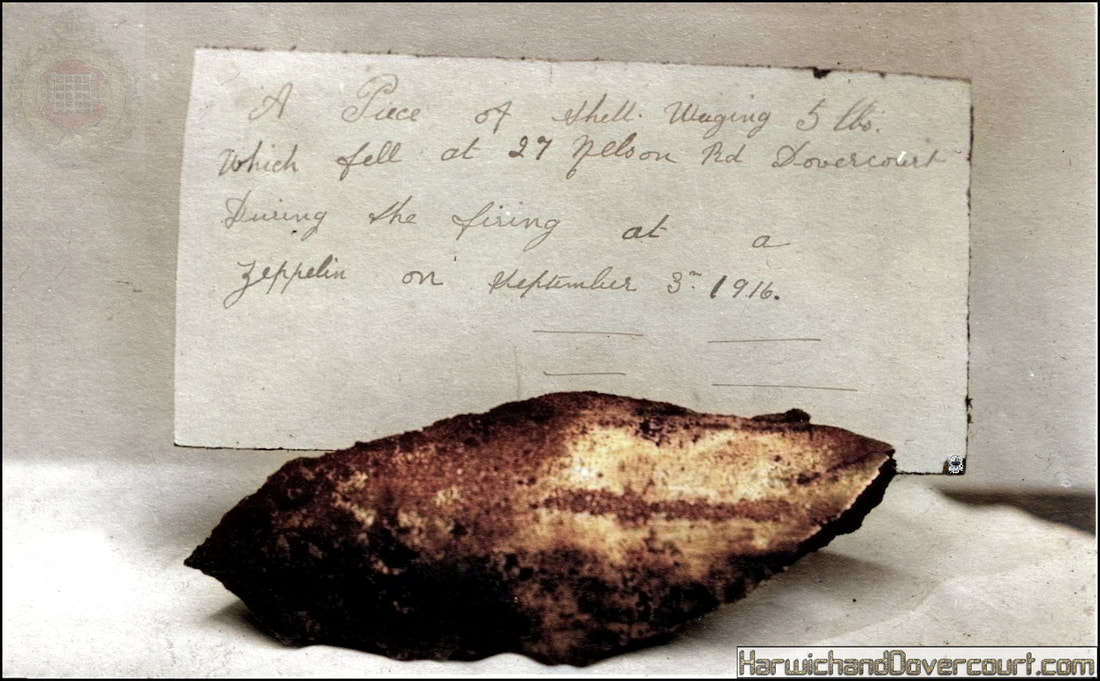 A Piece of shell. Waging 5 lbs.
Which fell at 27 Nelson Rd Dovercourt
During the firing at a
Zeppelin on September 3rd 1916.
HarwichandDovercourt.com